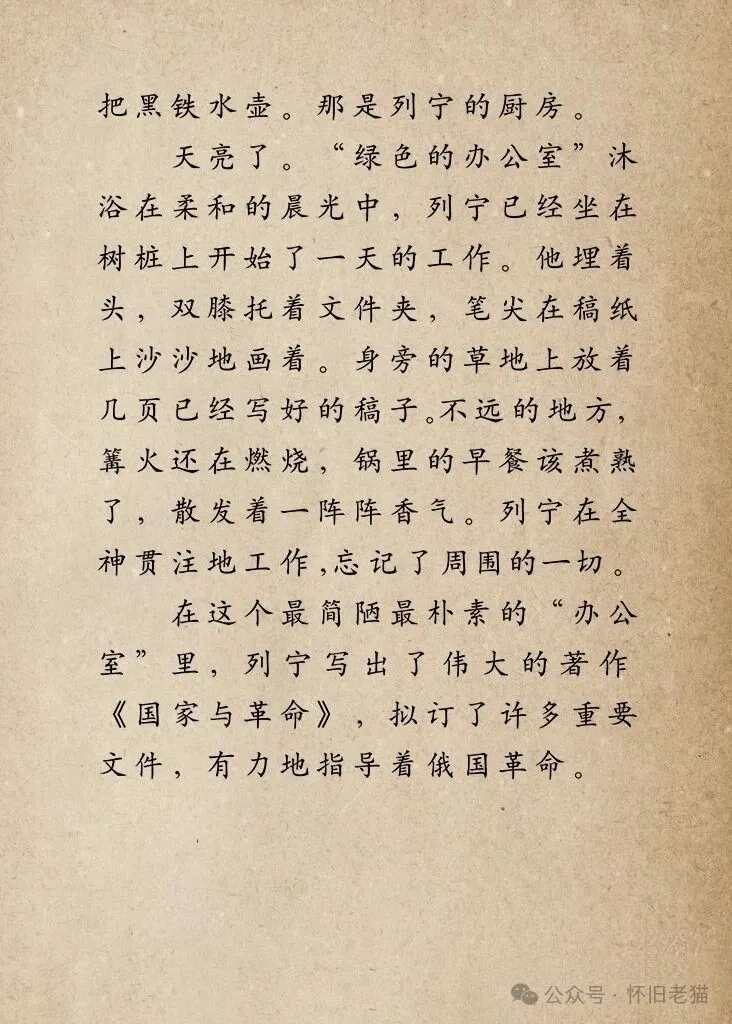 把黑铁水壶。那是列宁的厨房。
天亮了。“绿色的办公室”沐
浴在柔和的晨光中，列宁已经坐在
树桩上开始了一天的工作。他埋着
头，双膝托着文件夹，笔尖在稿纸
上沙沙地画着。身旁的草地上放着
几页已经写好的稿子。不远的地方，
篝火还在燃烧，锅里的早餐该煮熟
了，散发着一阵阵香气。列宁在全
神贯注地工作，忘记了周围的一切。
在这个最简陋最朴素的“办公
室”里，列宁写出了伟大的著作
《国家与革命》，拟订了许多重要
文件，有力地指导着俄国革命。
公众号·怀旧老猫